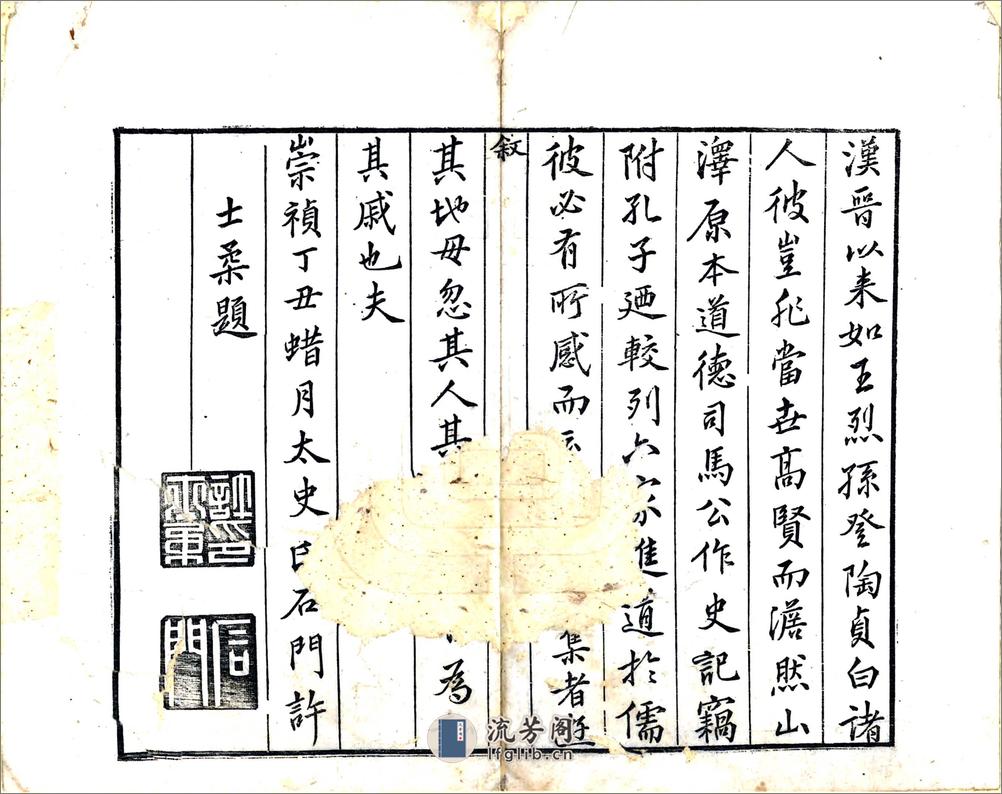 漢晉以来如王烈孫登陶貞白诸
人彼豈非當世高賢而澹然山
澤原本道德司馬公作史記竊
附孔子廼較列六家進道扵儒
彼必有所感而云
集者遊
敘
其地毋忽其人其
為
其戚也夫
崇禎丁丑蜡月太史氏石門許
士柔題
許印士柔
石門
流芳阁
lfglib.cn